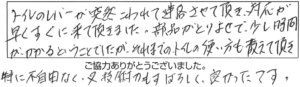 トイレのレバーが突然こわれて連絡させて頂き、対応が
早くすぐに来て頂きました。部品がとりよせで、少し時間
がかかるということでしたが、それまでのトイレの使い方も教えて頂き
ご協力ありがとうございました。
特に不自由なく、又技術力もすばらしく、良かったです。